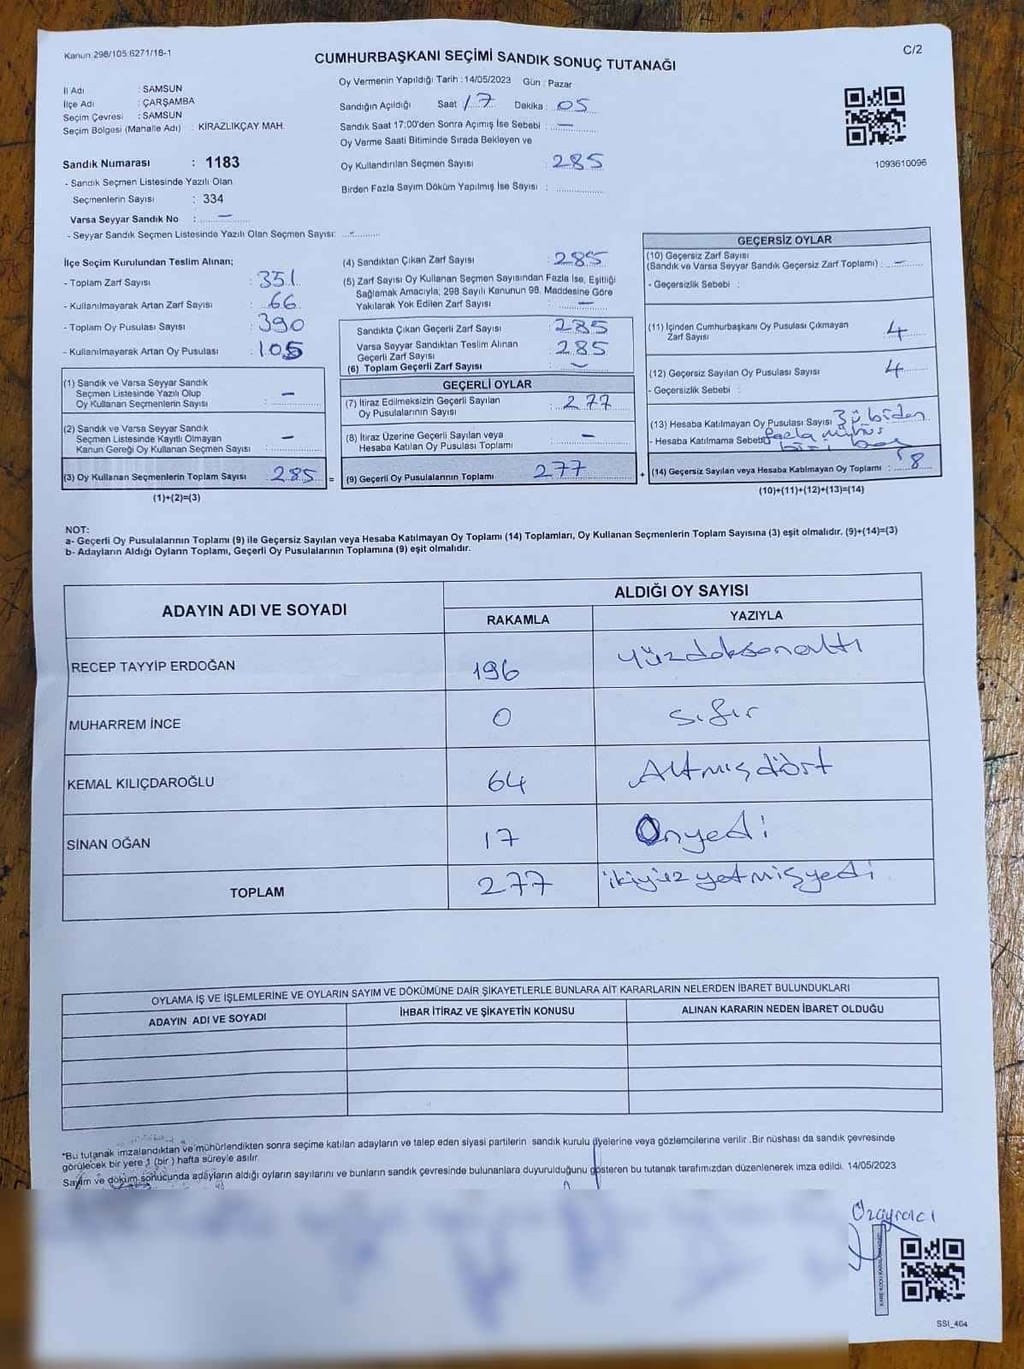 Kanun 298/105 6271/18-1
CUMHURBAŞKANI SEÇİMİ SANDIK SONUÇ TUTANAĞI
C/2
İl Adı : SAMSUN
İlçe Adı : ÇARŞAMBA
Seçim Çevresi : SAMSUN
Seçim Bölgesi (Mahalle Adı) : KİRAZLIKÇAY MAH.
Sandık Numarası : 1183
- Sandık Seçmen Listesinde Yazılı Olan
Seçmenlerin Sayısı : 334
Varsa Seyyar Sandık No : —
- Seyyar Sandık Seçmen Listesinde Yazılı Olan Seçmen Sayısı: -
Oy Vermenin Yapıldığı Tarih : 14/05/2023 Gün : Pazar
Sandığın Açıldığı Saat 17 Dakika : 05
Sandık Saat 17:00'den Sonra Açımış İse Sebebi : —
Oy Verme Saati Bitiminde Sırada Bekleyen ve
Oy Kullandırılan Seçmen Sayısı : 285
Birden Fazla Sayım Döküm Yapılmış İse Sayısı :
1093610096
İlçe Seçim Kurulundan Teslim Alınan;
- Toplam Zarf Sayısı : 351
- Kullanılmayarak Artan Zarf Sayısı : 66
- Toplam Oy Pusulası Sayısı : 390
- Kullanılmayarak Artan Oy Pusulası : 105
(1) Sandık ve Varsa Seyyar Sandık
Seçmen Listesinde Yazılı Olup
Oy Kullanan Seçmenlerin Sayısı : —
(2) Sandık ve Varsa Seyyar Sandık
Seçmen Listesinde Kayıtlı Olmayan
Kanun Gereği Oy Kullanan Seçmen Sayısı : —
(3) Oy Kullanan Seçmenlerin Toplam Sayısı : 285 =
(1)+(2)=(3)
(4) Sandıktan Çıkan Zarf Sayısı : 285
(5) Zarf Sayısı Oy Kullanan Seçmen Sayısından Fazla İse, Eşitliği
Sağlamak Amacıyla, 298 Sayılı Kanunun 98. Maddesine Göre
Yakılarak Yok Edilen Zarf Sayısı : —
Sandıkta Çıkan Geçerli Zarf Sayısı : 285
Varsa Seyyar Sandıktan Teslim Alınan : 285
Geçerli Zarf Sayısı
(6) Toplam Geçerli Zarf Sayısı : —
GEÇERLİ OYLAR
(7) İtiraz Edilmeksizin Geçerli Sayılan
Oy Pusulalarının Sayısı : 277
(8) İtiraz Üzerine Geçerli Sayılan veya
Hesaba Katılan Oy Pusulası Toplamı : —
(9) Geçerli Oy Pusulalarının Toplamı : 277 +
GEÇERSİZ OYLAR
(10) Geçersiz Zarf Sayısı
(Sandık ve Varsa Seyyar Sandık Geçersiz Zarf Toplamı) : —
- Geçersizlik Sebebi :
(11) İçinden Cumhurbaşkanı Oy Pusulası Çıkmayan
Zarf Sayısı : 4
(12) Geçersiz Sayılan Oy Pusulası Sayısı : 4
- Geçersizlik Sebebi :
(13) Hesaba Katılmayan Oy Pusulası Sayısı : 3ü birden
- Hesaba Katılmama Sebebi : fazla mühür
biri boş
(14) Geçersiz Sayılan veya Hesaba Katılmayan Oy Toplamı : 8
(10)+(11)+(12)+(13)=(14)
NOT:
a- Geçerli Oy Pusulalarının Toplamı (9) ile Geçersiz Sayılan veya Hesaba Katılmayan Oy Toplamı (14) Toplamları, Oy Kullanan Seçmenlerin Toplam Sayısına (3) eşit olmalıdır. (9)+(14)=(3)
b- Adayların Aldığı Oyların Toplamı, Geçerli Oy Pusulalarının Toplamına (9) eşit olmalıdır.
ADAYIN ADI VE SOYADI
ALDIĞI OY SAYISI
RAKAMLA YAZIYLA
RECEP TAYYİP ERDOĞAN 196 yüzdoksanaltı
MUHARREM İNCE 0 sıfır
KEMAL KILIÇDAROĞLU 64 Altmışdört
SİNAN OĞAN 17 Onyedi
TOPLAM 277 ikiyüzyetmişyedi
OYLAMA İŞ VE İŞLEMLERİNE VE OYLARIN SAYIM VE DÖKÜMÜNE DAİR ŞİKAYETLERLE BUNLARA AİT KARARLARIN NELERDEN İBARET BULUNDUKLARI
ADAYIN ADI VE SOYADI İHBAR İTİRAZ VE ŞİKAYETİN KONUSU ALINAN KARARIN NEDEN İBARET OLDUĞU
*Bu tutanak imzalandıktan ve mühürlendikten sonra seçime katılan adayların ve talep eden siyasi partilerin sandık kurulu üyelerine veya gözlemcilerine verilir. Bir nüshası da sandık çevresinde
görülecek bir yere 1 (bir) hafta süreyle asılır.
Sayım ve döküm sonucunda adayların aldığı oyların sayılarını ve bunların sandık çevresinde bulunanlara duyurulduğunu gösteren bu tutanak tarafımızdan düzenlenerek imza edildi. 14/05/2023
SSI_404